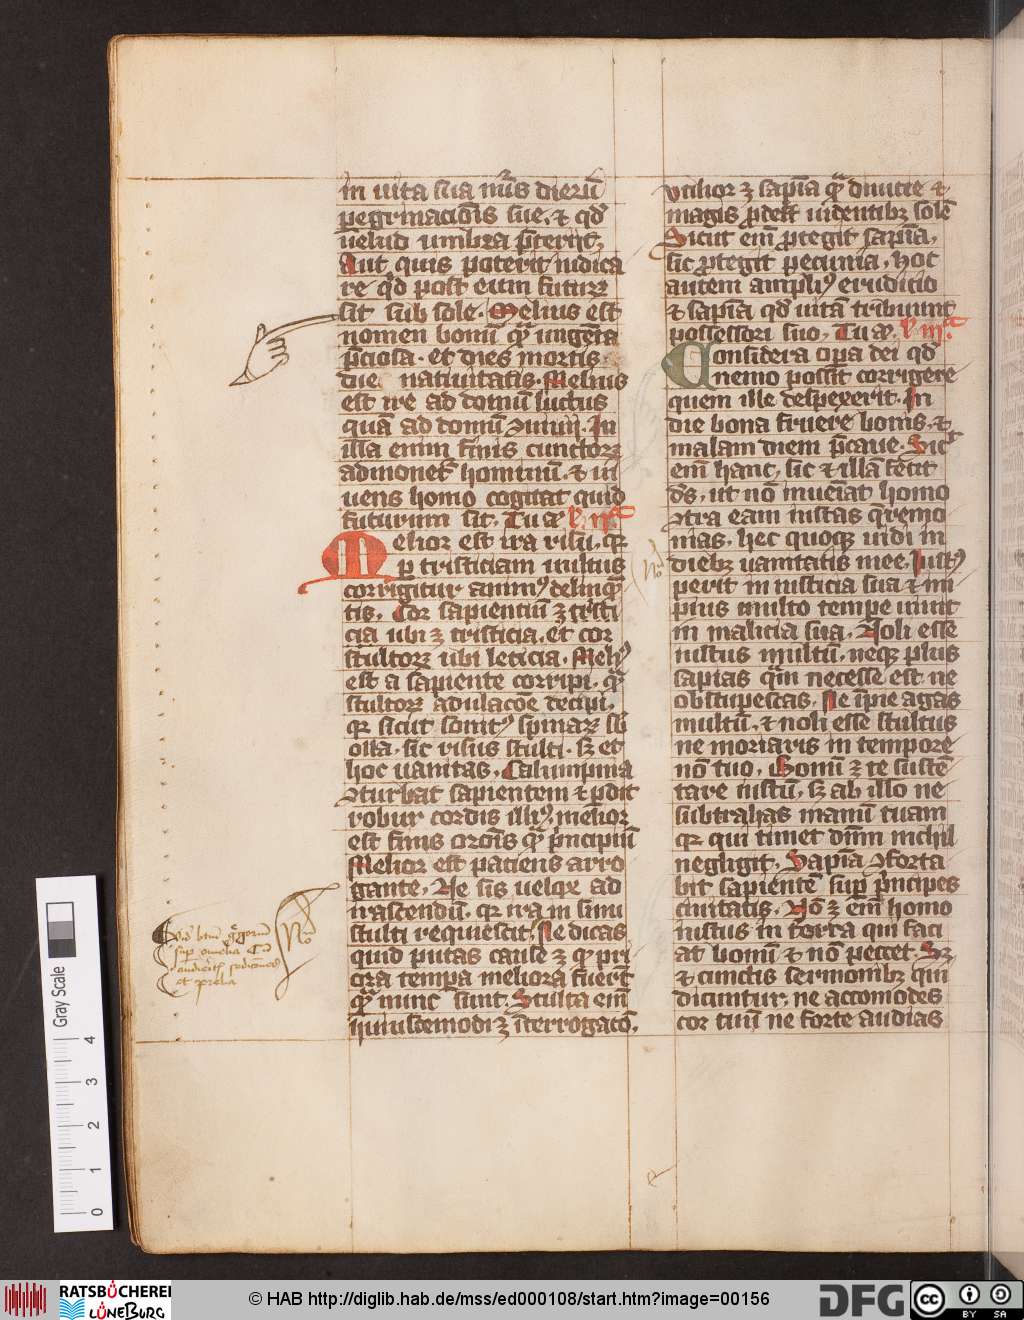 in uita sua nu̅s dieru̅
peg̅rinacio̅is sue. ⁊ qd̅
uelud umbra p̅terijt.
Aut quis poterit iudica
re qd̅ post eum futurꝝ
sit sub sole. Melius est
nomen bonu̅ qͣ ungenta
p̅ciosa. et dies mortis
die natiuitatis. Melius
est ire ad domu̅ luctus
qua̅ ad domu̅ ꝯuiuij. In
illa enim finis cunctorꝝ
admonet᷑ hominu̅. ⁊ ui
uens homo cogitat quid
futurum sit. Tu a
Melior est ira risu. qꝛ
p tristiciam uultus
corrigitur animꝰ delinq̅
tis. Cor sapienciu̅ ꝫ tristi
cia ubi ꝫ tristicia. et cor
stultorꝝ ubi leticia. Meliꝰ
est a sapiente corripi. qͣ
stultorꝝ adulacoe̅ decipi.
qꝛ sicut sonitꝰ spinaꝝ sb̅
olla. sic risus stulti. sꝫ et
hoc uanitas. Calumpnia
ꝯturbat sapientem ⁊ p̱dit
robur cordis illiꝰ. melior
est finis oro̅is qͣ p̅ncipiu̅
Melior est paciens arro
gante. Ne sis uelox ad
irascendu̅. qꝛ ira in sinu
stulti requiescit. Ne dicas
quid putas cause ꝫ qꝫ pri
ora tempa meliora fuer̅t
qͣ nunc sunt. Stulta em̅
huiuscemodi ꝫ i̅terrogaco̅.
Utilior ꝫ sapia̅ qͣ diuicie ⁊
magis p̱dest uidentibꝫ sole̅
Sicut em̅ p̱tegit sapia̅.
sic p̱tegit pecunia. hoc
autem ampliꝰ erudicio
⁊ sapia̅ qd̅ uita̅ tribuunt
possessori suo. Tu a
Considera opa dei qd̅
nemo possit corrigere
quem ille despexerit. In
die bona fruere bonis. ⁊
malam diem p̅caue. Sic̅
em̅ hanc. sic ⁊ illa̅ fecit
ds̅. ut no̅ inueiat homo
ꝯtra eam iustas q̅remo
nias. hec quoqꝫ uidi in
diebꝫ uanitatis mee. Iustꝰ
perit in iusticia sua ⁊ im
pius multo tempe uiuit
in malicia sua. Noli esse
iustus multu̅. neqꝫ plus
sapias qͣm necesse est ne
obstupescas. Ne i̅pie agas
multu̅. ⁊ noli esse stultus
ne moriaris in tempore
no̅ tuo. Bonu̅ ꝫ te suste̅
tare iustu̅. sꝫ ab illo ne
subtrahas manu̅ tuam
qꝛ qui timet dn̅m nichil
negligit. Sapia̅ ꝯforta
bit sapiente̅ sup p̅ncipes
ciuitatis. No̅ ꝫ em̅ homo
iustus in terra qui faci
at bonu̅ ⁊ no̅ peccet. Sꝫ
⁊ cunctis sermonibꝫ qui
dicuntur. ne accomodes
cor tuu̅ ne forte audias
Gray Scale
0 1 2 3 4
RATSBÜCHEREI
LÜNEBURG
© HAB http://diglib.hab.de/mss/ed000108/start.htm?image=00156
DFG
cc BY SA